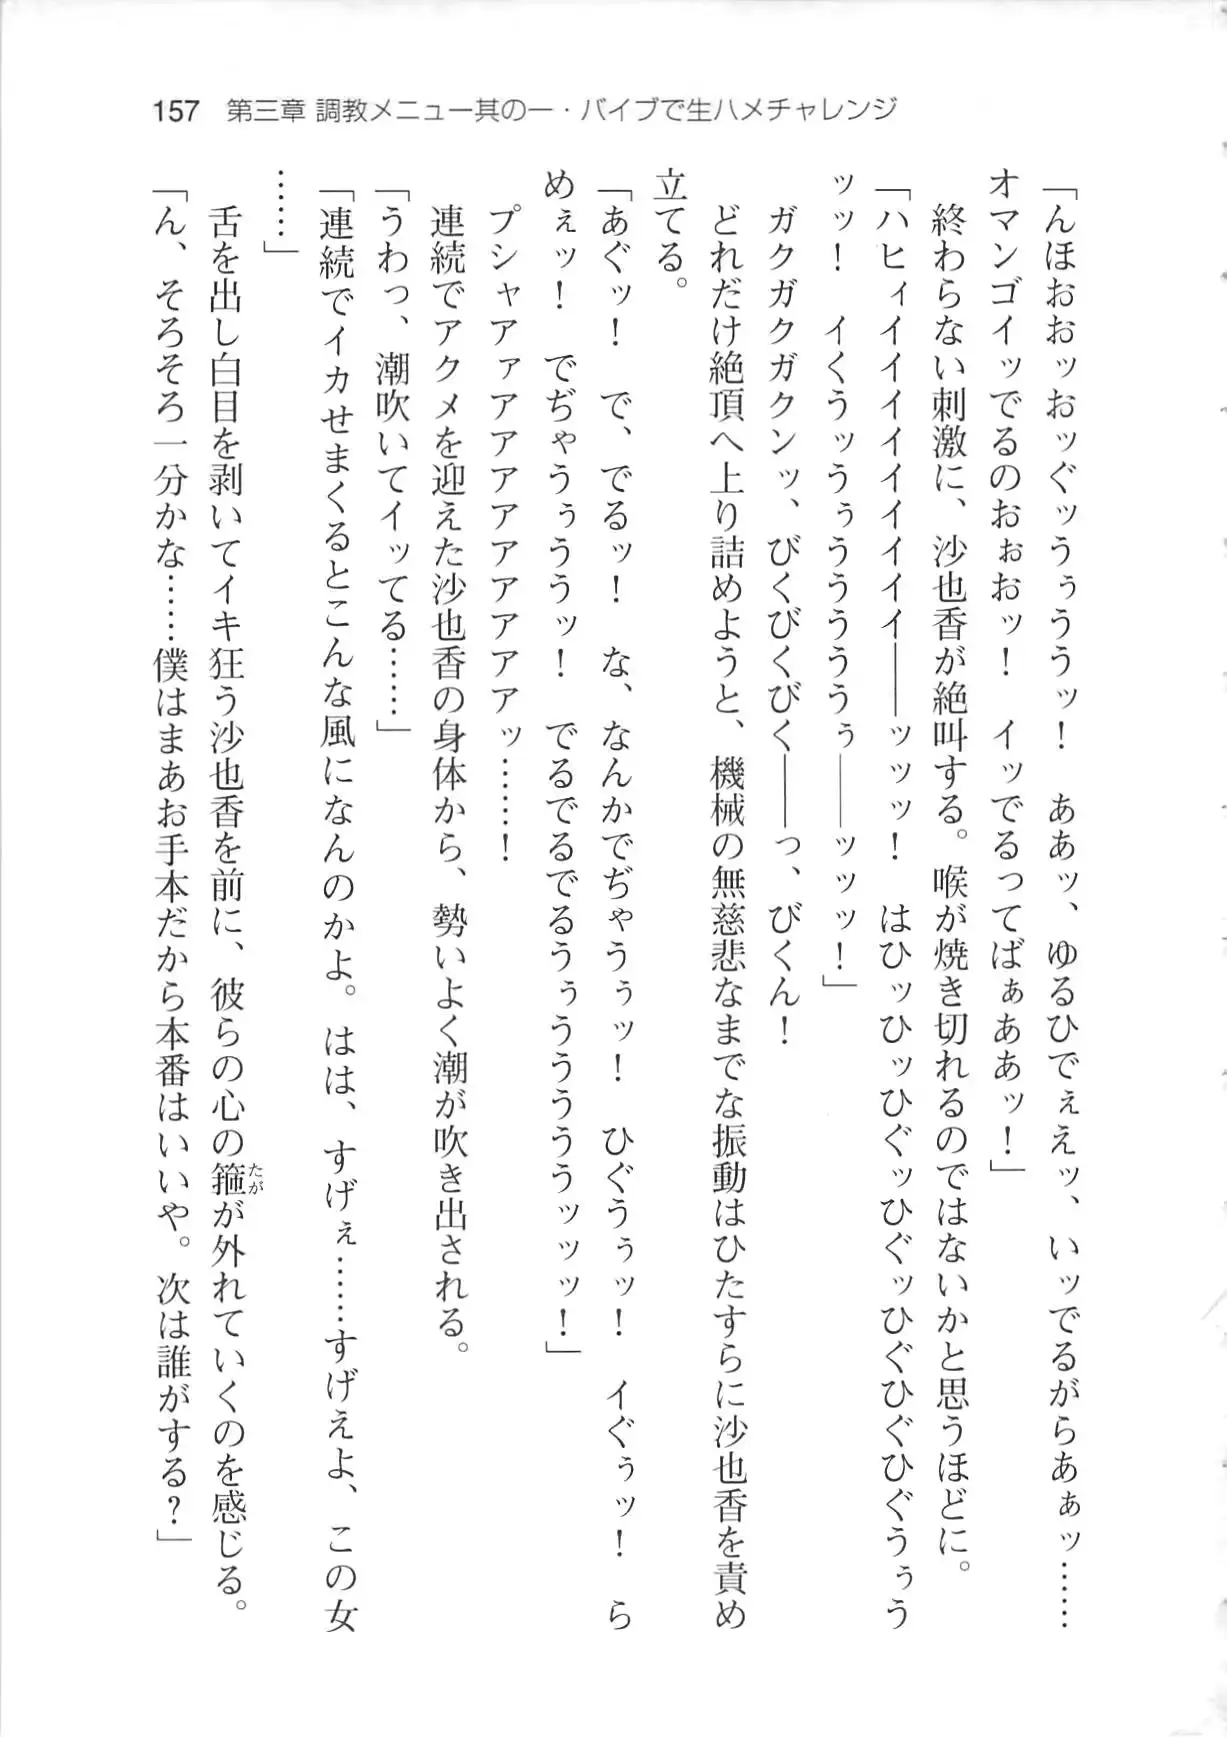 157 第三章 調教メニュー其の一・バイブで生ハメチャレンジ
「んほおおッおぉッぐッうぅううッ！　ああッ、ゆるひでぇえッ、いッでるがらあぁッ……
オマンゴイッでるのおぉおッ！　イッでるってばぁああッ！」
　終わらない刺激に、沙也香が絶叫する。喉が焼き切れるのではないかと思うほどに。
「ハヒィイイイイイイイイ――ッッッ！　はひッひッひぐッひぐッひぐひぐひぐうぅう
ッッ！　イくうッうぅううううぅ――ッッッ！」
　ガクガクガクンッ、びくびくびく――っ、びくん！
　どれだけ絶頂へ上り詰めようと、機械の無慈悲なまでな振動はひたすらに沙也香を責め
立てる。
「あぐッ！　で、でるッ！　な、なんかでぢゃうぅッ！　ひぐうぅッ！　イぐぅッ！　ら
めぇッ！　でぢゃうぅううッ！　でるでるでるうぅううううッッッ！」
　プシャアァアアアアアアアアッ……！
　連続でアクメを迎えた沙也香の身体から、勢いよく潮が吹き出される。
「うわっ、潮吹いてイッてる……」
「連続でイカせまくるとこんな風になんのかよ。はは、すげぇ……すげえよ、この女
……」
　舌を出し白目を剥いてイキ狂う沙也香を前に、彼らの心の箍が外れていくのを感じる。
たが
「ん、そろそろ一分かな……僕はまあお手本だから本番はいいや。次は誰がする？」